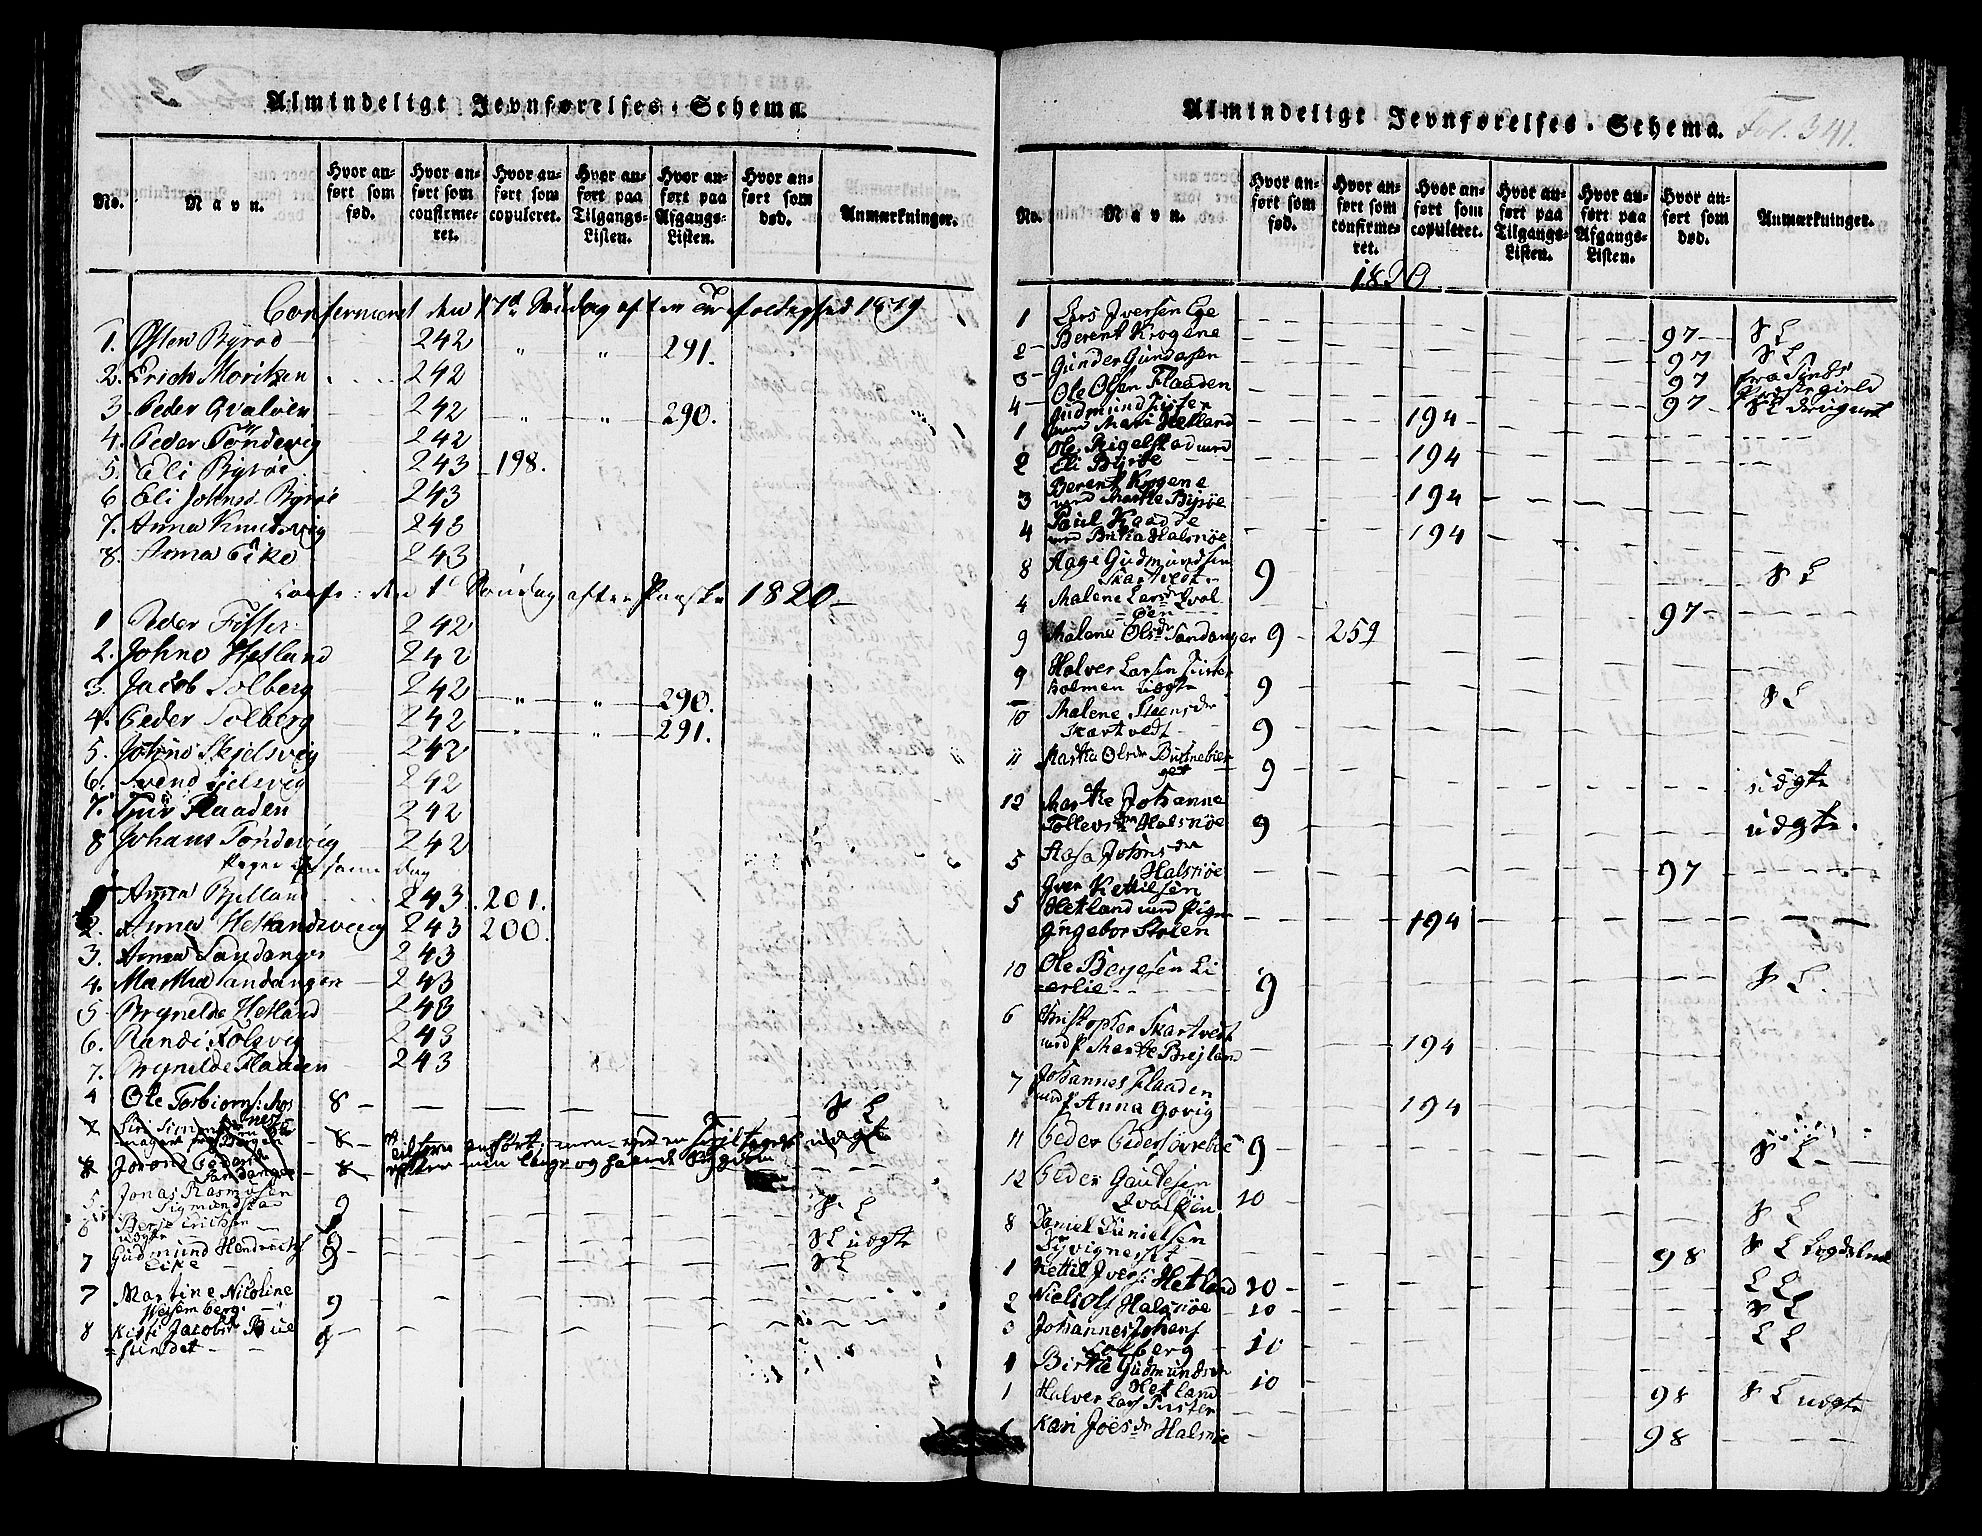 Almindeligt Jevnførelses-Schema.
No.
Navn.
Hvor anført som fød.
Hvor anført som confirmeret.
Hvor anført som copuleret.
Hvor anført paa Tilgangs-Listen.
Hvor anført paa Afgangs-Listen.
Hvor anført som død.
Anmærkninger.
Confirmeret den 17d Søndag efter Trefoldighed 1819
1. Østen Byrød 242 " " 291.
2. Erich Moritzen 242
3. Peder Qvaløen 242 290.
4. Peder Tøndevig 242
5. Eli Byrøe 243 198.
6 Eli Johnsd. Byrøe 243
7. Anna Knudsvig 243
8. Anna Eike 243
Confr: den 1e Søndag efter Paaske 1820
1 Peder Fister 242
2. Johne Hetland 242
3. Jacob Solberg 242 " " 290.
4. Peder Solberg 242 " " 291.
5. Johne Skjelsvig 242
6. Svend 242
7. Tjur Flaaden 242
8 Johans Tøndevig 242
Piger samme dag
1 Anna Bjelland 243 201.
2. Anna Hetlandsveig 243 200.
3. Anna Sandanger 243
4. Martha Sandanger 243
5 Brynelde Hetland 243
6. Randi Folsvig 243
7. Brynilde Flaaden 243
4 Ole Torbiorns: 8 S L
8 anført men
8 Jorond Peders Sandanger 8
5 Jonas Rasmusen 9 S L
Sigmundstad
6 Berje Erichsen 9 S L uægte
uægte
7 Gudmund Hendrichs 9 S L
Eike
7 Martine Nicoline 9
8 Kisti Jacobsdr Bue 9
sundet
Almindeligt Jevnførelses-Schema. Fol. 341.
No.
Navn.
Hvor anført som fød.
Hvor anført som confirmeret.
Hvor anført som copuleret.
Hvor anført paa Tilgangs-Listen.
Hvor anført paa Afgangs-Listen.
Hvor anført som død.
Anmærkninger.
1820
1 Lars Iversen Ege 97 S L
2 Berent Krogene 97 S L
3 Gunder Gundersen 97
4 Ole Olsen Flaaden 97
1 Gudmund Fister 194
med Mari Hetland
2 Ole Rigelstad med 194
Eli Byrøe
3 Berent Krogene 194
med Marthe Byrøe
4 Poul 194
med Britha Halsnøe
8 Aage Gudmundsen 9 S L
Skartvedt
4 Malene Larsdr Qval 97
øen
9 Malene Olsdr Sandanger 9 259
9 Halver Larsen Fister 9 S L
holmen uægte
10 Malene Steensdr 9
Skartvedt
11 Martha Olsdr 9 uægte
12 Marthe Johanne 9 uægte.
Tollevsdr Halsnøe
5 Aasa Johnsdr 97
Halsnøe
5 Iver Kettilsen 194
Hetland med Pigen
Ingebor Stolen
10 Ole Berjesen Li 9 S L.
erlie
6 Christopher Skartvedt 194
med P Marthe Brejland
7 Johannes Flaaden 194
med P Anna Govig
11 Peder Peders 9 S L
12 Peder Gautesen 10 S L
Qvaløen
8 Daniel Danielsen 98 S L
1 Kettil Ivers: Hetland 10 L L
2 Niels Ols Halsnøe 10 S L
3 Johannes Johans 10 L L
Solberg
1 Birthe Gudmundsdr 10
Hetland
1 Halver Lars Fister 98 S L uægte
Kari Joesdr Halsnøe 98